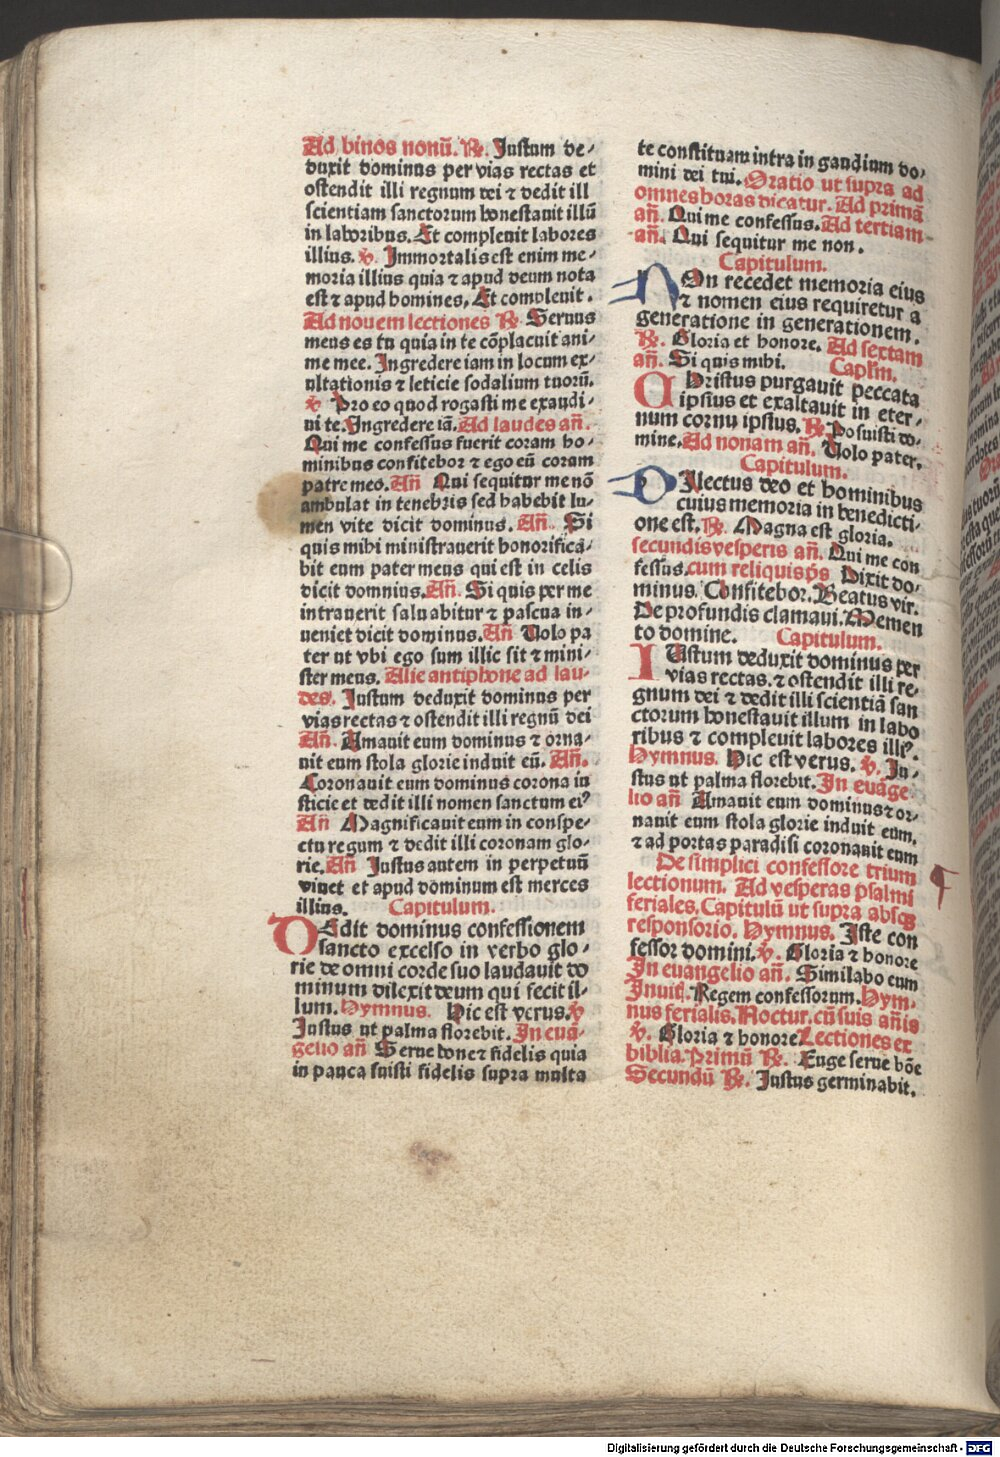 Ad binos nonū. ℟. Justum de⸗
duxit dominus per vias rectas et
ostendit illi regnum dei ⁊ dedit ill
scientiam sanctorum honestauit illū
in laboribus. Et compleuit labores
illius. ℣. Immortalis est enim me⸗
moria illius quia ⁊ apud deum nota
est ⁊ apud homines, Et compleuit.
Ad nouem lectiones ℟. Seruus
meus es tu quia in te cōplacuit ani⸗
me mee. Ingredere iam in locum ex⸗
ultationis ⁊ leticie sodalium tuorū.
℣ Pro eo quod rogasti me exaudi⸗
ui te. Ingredere iā. Ad laudes añ.
Qui me confessus fuerit coram ho⸗
minibus confitebor ⁊ ego eū coram
patre meo. Añ Qui sequitur me nō
ambulat in tenebris sed habebit lu⸗
men vite dicit dominus. Añ. Si
quis mihi ministrauerit honorificā⸗
bit eum pater meus qui est in celis
dicit domnius. Añ. Si quis per me
intrauerit saluabitur ⁊ pascua in⸗
ueniet dicit dominus. Añ Uolo pa
ter ut vbi ego sum illic sit ⁊ mini⸗
ster meus. Alie antiphone ad lau⸗
des. Justum deduxit dominus per
vias rectas ⁊ ostendit illi regnū dei
Añ. Amauit eum dominus ⁊ orna⸗
uit eum stola glorie induit eū. Añ.
Coronauit eum dominus corona iu
sticie et dedit illi nomen sanctum ei⁹
Añ Magnificauit eum in conspe⸗
ctu regum ⁊ dedit illi coronam glo⸗
rie. Añ Justus autem in perpetuū
viuet et apud dominum est merces
illius. Capitulum.
DEdit dominus confessionem
sancto excelso in verbo glo⸗
rie de omni corde suo laudauit do
minum dilexit deum qui fecit il⸗
lum. Hymnus. Hic est verus. ℣
Justus ut palma florebit. In euā⸗
gelio añ Serue bone ⁊ fidelis quia
in pauca fuisti fidelis supra multa
te constituam intra in gaudium do⸗
mini dei tui. Oratio ut supra ad
omnes horas dicatur. Ad primā
añ. Qui me confessus. Ad tertiam
añ. Qui sequitur me non.
Capitulum.
NOn recedet memoria eius
⁊ nomen eius requiretur a
generatione in generationem.
℟. Gloria et honore. Ad sextam
añ. Si quis mihi. Caplm̄.
CHristus purgauit peccata
ipsius et exaltauit in eter⸗
num cornu ipsius. ℟. Posuisti do⸗
mine. Ad nonam añ. Uolo pater.
Capitulum.
DIlectus deo et hominibus
cuius memoria in benedicti⸗
one est. ℟. Magna est gloria.
secundis vesperis añ. Qui me con
fessus. cum reliquis p̄s Dixit do⸗
minus. Confitebor. Beatus vir.
De profundis clamaui. Memen
to domine. Capitulum.
IUstum deduxit dominus per
vias rectas. ⁊ ostendit illi re⸗
gnum dei ⁊ dedit illi scientiā san
ctorum honestauit illum in labo
ribus ⁊ compleuit labores illi⁹.
Hymnus. Hic est verus. ℣. Ju⸗
stus ut palma florebit. In euāge
lio añ Amauit eum dominus ⁊ or⸗
nauit eum stola glorie induit eum.
⁊ ad portas paradisi coronauit eum
De simplici confessore trium
lectionum. Ad vesperas psalmi
feriales. Capitulū ut supra absqꝫ
responsorio. Hymnus. Iste con
fessor domini. ℣. Gloria ⁊ honore
In euangelio añ. Similabo eum
Inuit̄. Regem confessorum. Hym⸗
nus ferialis. Noctur. cū suis añis
℣. Gloria ⁊ honore Lectiones ex
biblia. Primū ℟. Euge serue bōe
Secundū ℟. Justus germinabit.
Digitalisierung gefördert durch die Deutsche Forschungsgemeinschaft - DFG